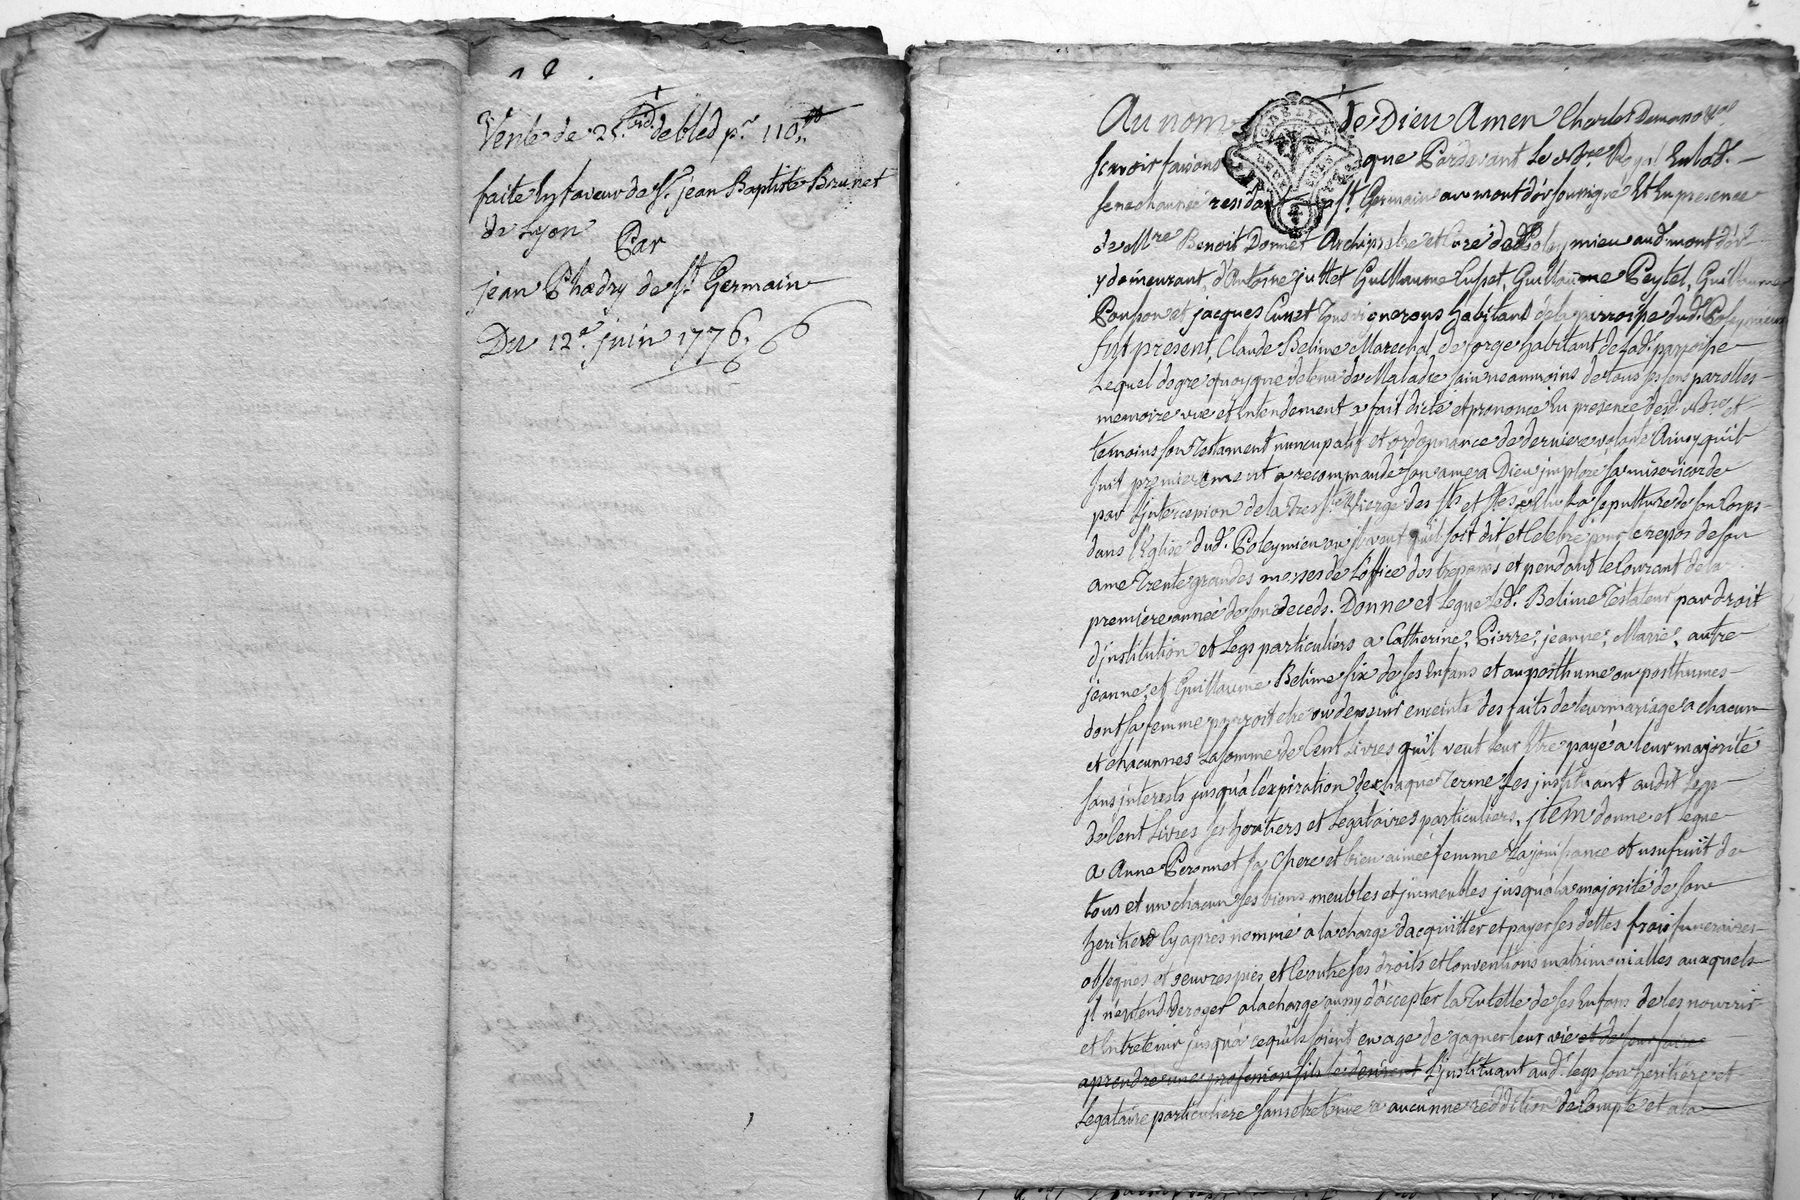 Vente de 25 bd. de bled pr. 110
faite En faveur de Sr. jean Baptiste Brunet
de Lyon
Par
jean Phædry de St. Germain
Du 12e. juin 1776
Au nom de Dieu Amen Charles
scavoir faisons que Pardevant Le Nore. Royal En lad.
senechaussée residant a St. Germain au mont d'or soussigné Et En presence
de Mre Benoit Donnet Archiprestre et Curé de Poleymieu aud. mont d'or
y demeurant, d'Antoine juttet Guillaume Cusset, Guillaume Peytel, Guillaume
Poupon et jacques Cunet Tous vignerons habitans de la parroisse dud. Poleymieu
fut present, Claude Belime Marechal de forge habitant de lad. parroisse
Lequel de gre quoyque detenu de Maladie sain neanmoins de tous ses sens parolles
memoire vue et Entendement a fait dicté et prononcé En presence desd. Nore. et
temoins son Testament nuncupatif et ordonnance de derniere volonté Ainsy quil
suit premierement a recommandé son ame a Dieu imploré sa misericorde
par L'intercession de la tres ste. Vierge des sts et stes. Elu La sepulture de son Corps
dans l'Eglise dud. Poleymieu ou il veut quil soit dit et Celebré pour le repos de son
ame Trente grandes messes de L'office des trepassés et pendant le Courant de la
premiere année de son deceds. Donne et Legue led. Belime Testateur par droit
d'institution et Legs particuliers a Catherine, Pierre, jeanne, Marie, autre
jeanne, et Guillaume Belime six de ses Enfans et au posthume ou posthumes
dont sa femme pourroit etre ou demeurer enceinte des faits de leur mariage a chacun
et chacunnes La somme de Cent Livres quil veut leur Etre payé a leur majorité
sans interests jusqu'a l'expiration de chaque Terme Les instituant audit Legs
de Cent Livres ses heritiers et Legataires particuliers, jtem donne et legue
a Anne Peronnet sa Chere et bien aimée femme La jouissance et usufruit de
tous et un chacun ses biens meubles et jmmeubles jusqu'a la majorité de son
heritier Cy apres nommé a la charge d'acquitter et payer ses dettes frais funeraires
obseques et oeuvres pies et Ce outre ses droits et Conventions matrimonialles auxquels
jl n'entend deroger a la charge aussy d'accepter la Tutelle de ses Enfans de les nourrir
et Entretenir jusqu'a ce quils soient en age de gagner leur vie et de leur faire
aprendre une profession sils le desirent L'instituant aud. legs son heritiere et
Legataire particuliere sans etre tenue a aucunne reddition de Compte et a la